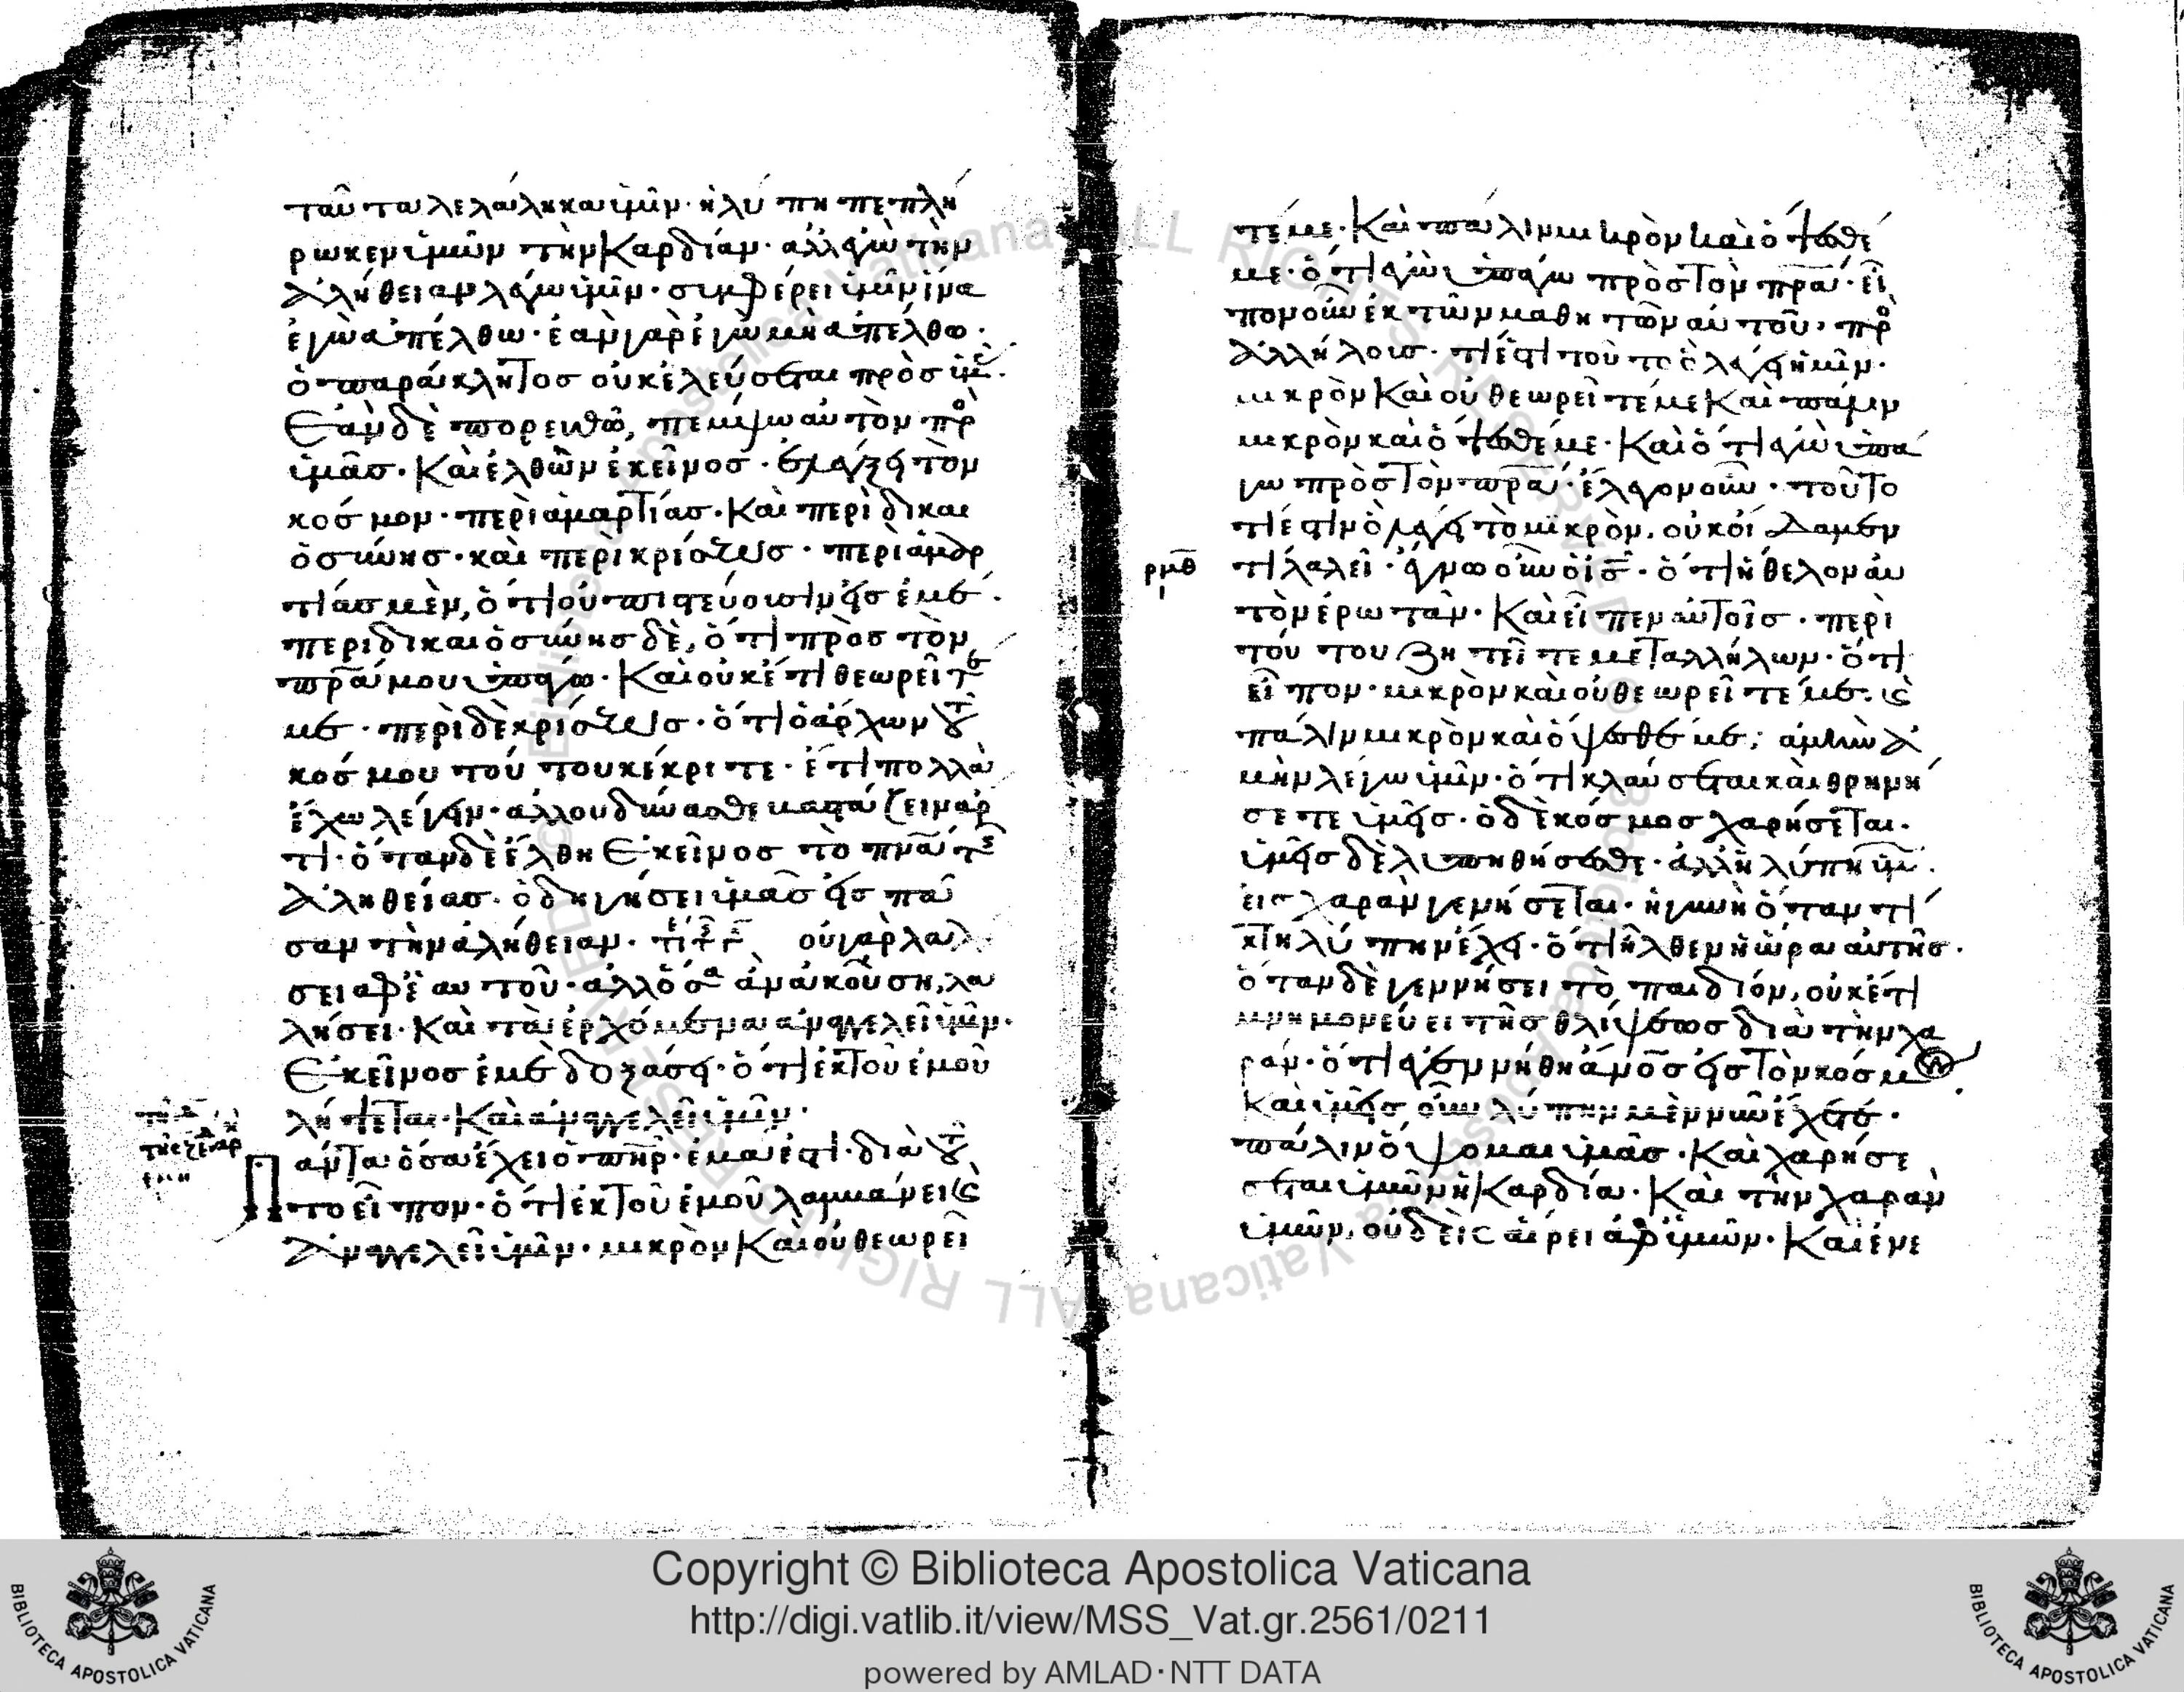 ταῦτα λελάληκα ὑμῖν· ἡ λύπη πεπλή
ρωκεν ὑμῶν τὴν καρδίαν· ἀλλ' ἐγὼ τὴν
ἀλήθειαν λέγω ὑμῖν· συμφέρει ὑμῖν ἵνα
ἐγὼ ἀπέλθω· ἐὰν γὰρ ἐγὼ μὴ ἀπέλθω·
ὁ παράκλητος οὐκ ἐλεύσεται πρὸς ὑμ̑·
ἐὰν δὲ πορευθῶ, πέμψω αὐτὸν πρ
ὑμᾶς· καὶ ἐλθὼν ἐκεῖνος· ἐλέγξει τὸν
κόσμον· περὶ ἁμαρτίας· καὶ περὶ δικαι
ὁσύνης· καὶ περὶ κρίσεως· περὶ ἁμαρ
τίας μὲν, ὅτι οὐ πιστεύουσιν εἰς ἐμέ·
περι δικαιὁσύνης δὲ, ὅτι πρὸς τὸν
πρ̅α μου ὑπάγω· καὶ οὐκέτι θεωρεῖτε
με· περὶ δὲ κρίσεως· ὅτι ὁ ἄρχων τοῦ
κόσμου τούτου κέκριτε· ἔτι πολλὰ
ἔχω λέγειν· ἀλλ' οὐ δύνασθε βαστάζειν ἄρ
τι· ὅταν δὲ ἔλθη ἐκεῖνος τὸ πν̅α τῆς
ἀληθείας· ὁδηγήσει ὑμᾶς εἰς πᾶ
σαν τὴν ἀλήθειαν· οὐ γὰρ λαλή
σει ἀφ' ἑαυτοῦ· ἀλλ' ὅσα ἂν ἀκούση, λα
λήσει· καὶ τὰ ἐρχόμενα ἀναγγελεῖ ὑμῖν·
ἐκεῖνος ἐμὲ δοξάσει· ὅτι ἐκ τοῦ ἐμοῦ
λήψεται· καὶ ἀναγγελεῖ ὑμῖν·
Πάντα ὅσα ἔχει ὁ πη̅ρ· ἐμά ἐστι· διὰ τοῦ
το εἶπον· ὅτι ἐκ τοῦ ἐμοῦ λαμβάνει καὶ
ἀναγγελεῖ ὑμῖν· μικρὸν καὶ οὐ θεωρεῖ
τέ με· καὶ πάλιν μικρὸν καὶ ὄψεσθέ
με· ὅτι ἐγὼ ὑπάγω πρὸς τὸν πρ̅α· εἶ
πον οὖν ἐκ τῶν μαθητῶν αὐτοῦ· πρ
ἀλλήλους· τί ἐστι τοῦτο ὃ λέγει ἡμῖν·
μικρὸν καὶ οὐ θεωρεῖτέ με καὶ πάλιν
μικρὸν καὶ ὄψεσθέ με· καὶ ὅτι ἐγὼ ὑπά
γω πρὸς τὸν πρ̅α· ἔλεγον οὖν· τοῦτο
τί ἐστιν ὃ λέγει τὸ μικρὸν, οὐκ οἴδαμεν
ρμθ τί λαλεῖ· ἔγνω οὖν ὁ ι̅ς· ὅτι ἤθελον αὐ
τὸν ἐρωτᾶν· καὶ εἶπεν αὐτοῖς· περὶ
τούτου ζητεῖτε μετ' ἀλλήλων· ὅτι
εἶπον· μικρὸν καὶ οὐ θεωρεῖτέ με· καὶ
πάλιν μικρὸν καὶ ὄψεσθέ με; ἀμὴν ἀ
μὴν λέγω ὑμῖν· ὅτι κλαύσεται καὶ θρηνή
σετε ὑμεῖς· ὁ δὲ κόσμος χαρήσεται·
ὑμεῖς δὲ λυπηθήσεσθε· ἀλλ' ἡ λύπη ὑμ̑·
εἰς χαρὰν γενήσεται· ἡ γυνὴ ὅταν τί
κτη λύπην ἔχει· ὅτι ἦλθεν ἡ ὥρα αὐτῆς·
ὅταν δὲ γεννήσει τὸ παιδίον, οὐκέτι
μνημονεύει τῆς θλίψεως διὰ τὴν χα
ράν· ὅτι ἐγεννήθη ἄνο̅ς εἰς τὸν κόσμ
καὶ ὑμεῖς οὖν λύπην μὲν νῦν ἔχετε·
πάλιν ὄψομαι ὑμᾶς· καὶ χαρήσε
σεται ὑμῶν ἡ καρδία· καὶ τὴν χαρὰν
ὑμῶν, οὐδεὶς αἴρει ἀφ' ὑμῶν· καὶ ἐνε
Copyright © Biblioteca Apostolica Vaticana
http://digi.vatlib.it/view/MSS_Vat.gr.2561/0211
powered by AMLAD·NTT DATA
BIBLIOTECA APOSTOLICA VATICANA
BIBLIOTECA APOSTOLICA VATICANA